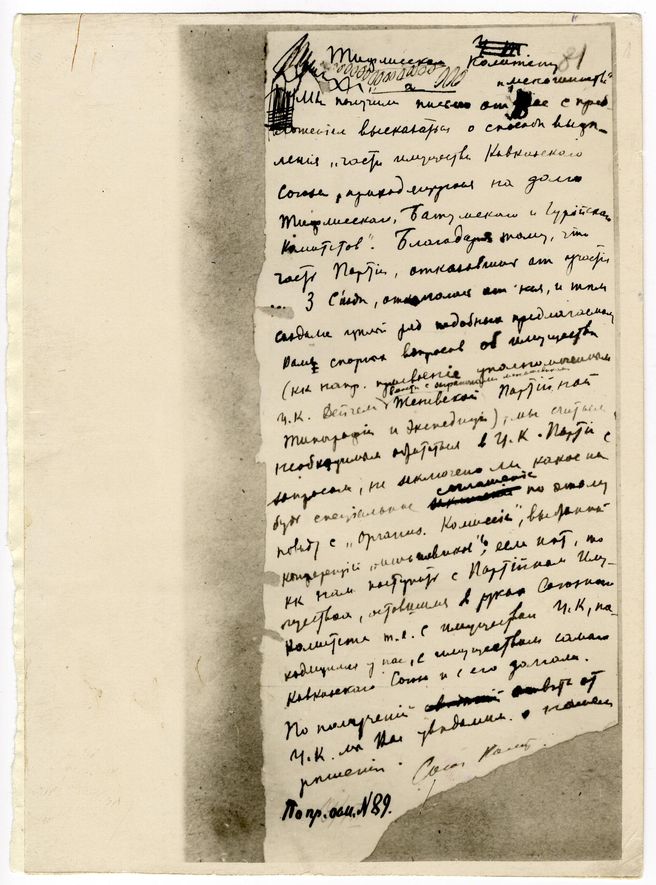 Тифлисскому Комитету
81
"меньшинства"
Мы получили письмо от Вас с пред-
ложением высказаться о способе выде-
ления "части имущества Кавказского
Союза, приходящуюся на долю
Тифлисского, Батумского и Гурийского
Комитетов". Благодаря тому, что
часть Партии, отказавшись от участия
... 3 Съезде, откололась от нея, и тем
создала целый ряд подобных предлагаемому
Вами спорных вопросов об имуществе
(как напр. присвоение уполномоченным
Ц.К. Женевской Партийной
Типографии и Экспедиции), мы считаем
необходимым обратиться в Ц.К. Партии с
вопросом, не заключено ли какое ни
будь специальное соглашение по этому
поводу с "Организ. Комиссией", выбранной
конференцией "меньшевиков"; если нет, то
как нам поступить с Партийным Иму-
ществом, оставшимся в руках Союзного
Комитета т.е. с имуществом Ц.К., на-
ходящимся у нас, с имуществом самого
Кавказского Союза и с его долгами.
По получении ответа от
Ц.К. мы Вас уведомим о нашем
решении.
Союз. Комит.
По пр. оп. N 89.